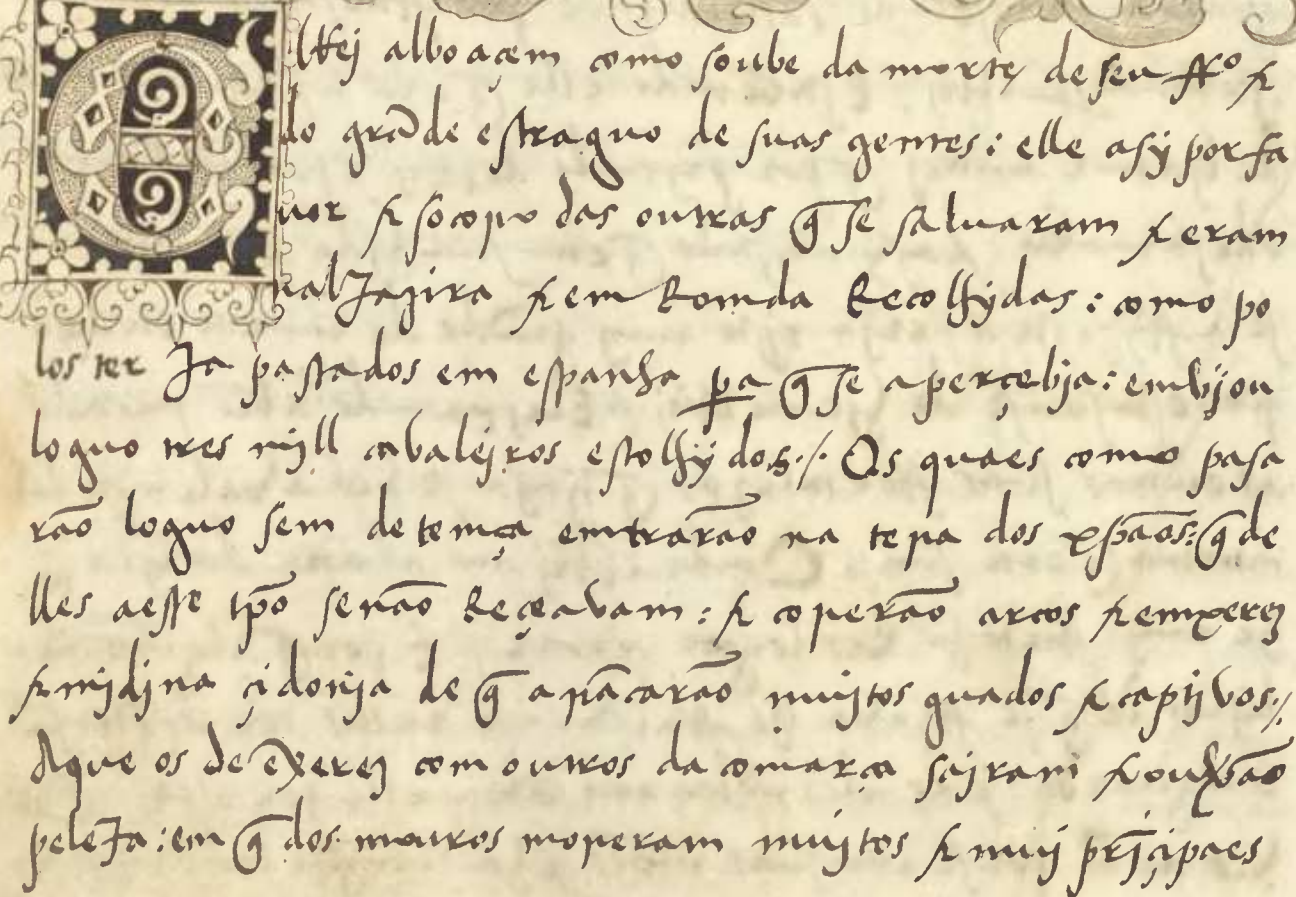 ElRej alboaçem como soube da morte, de seu ff.º &
do grãde estraguo de suas gentes: elle asy por fa
uor & socorro das outras q̃ se saluaram & eram
naljazira & em Romda Recolhydas: como po
los ter Ja passados em espanha pa q̃ se aperçebja: embjou
loguo tres mjll cabalejros escolhydos./. Os quaes como pasa
rão loguo sem detemça emtrarão na terra dos xpãos: q̃ de
lles aesse tpõ se não Reçeavam: & correrão arcos & emxerez
& midjna çidonja de q̃ arrãcarão mujtos guados & captjvos./.
Aque os de ẽxerez com outros da comarca sajram & ouverão
peleJa: em q̃ dos mouros morreram mujtos & muj prĩçipaes